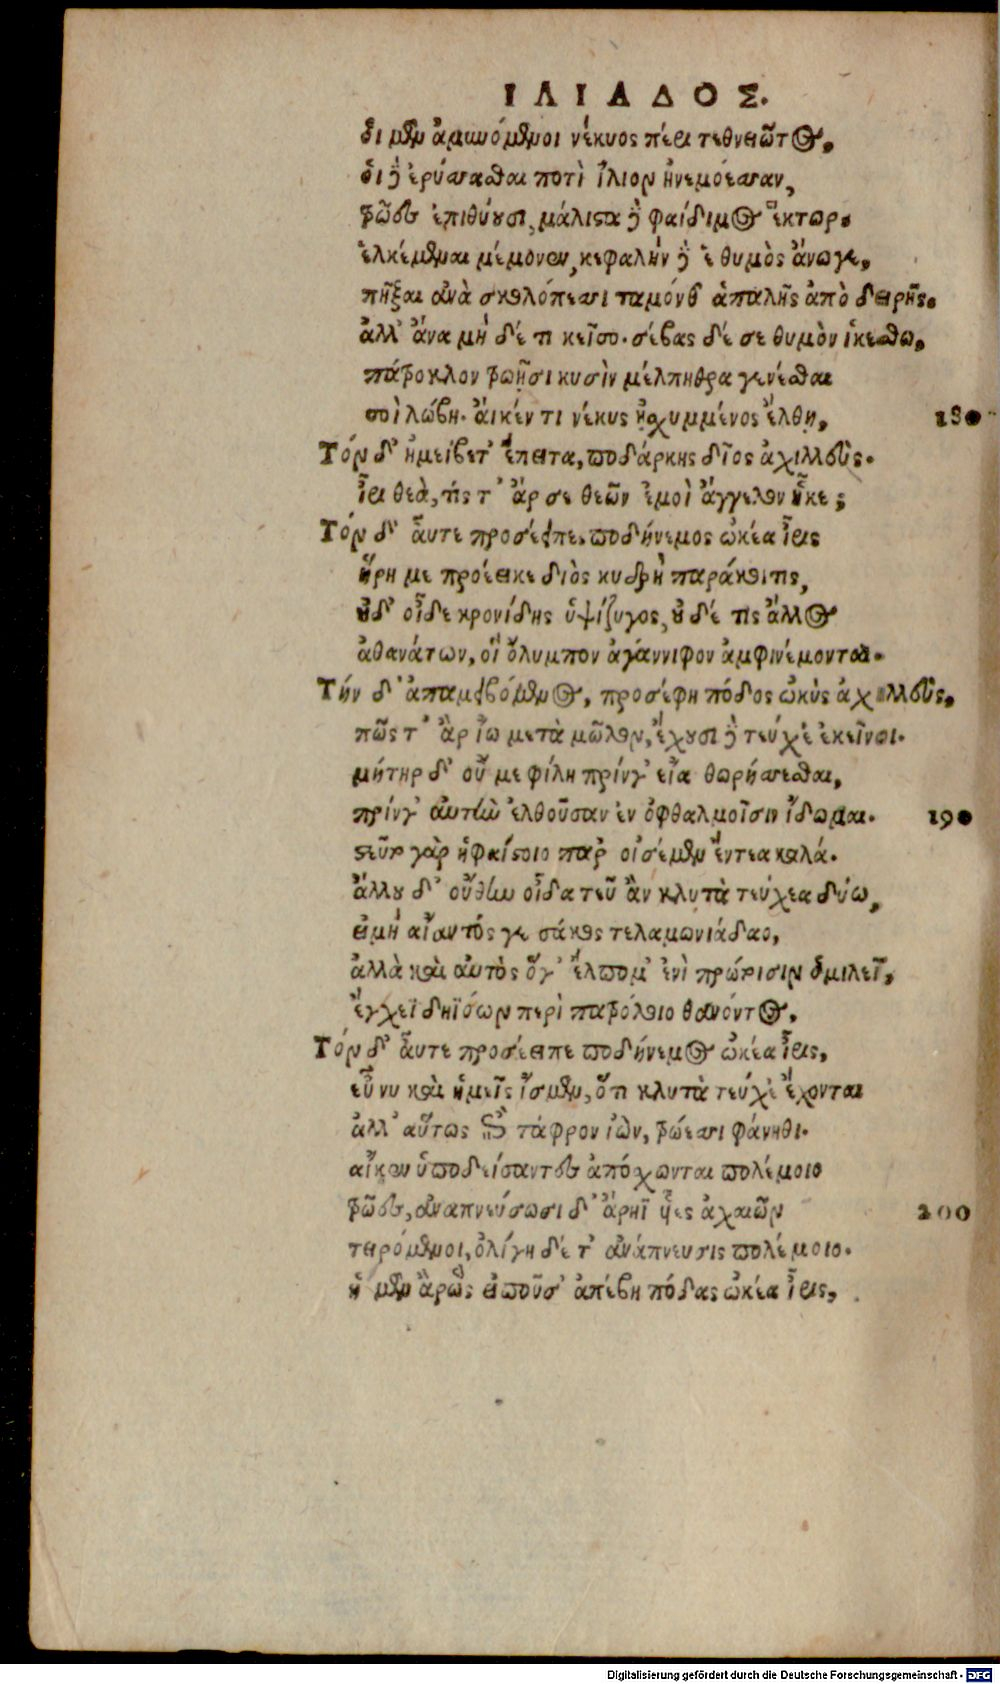 ΙΛΙΑΔΟΣ.
ὁι μὲν ἀμυνόμενοι νέκυος πέρι τεθνειῶτος,
ὁι δὲ ἐρύσσασθαι ποτὶ ἴλιον ἠνεμόεσσαν,
τρῶες ἐπιθύουσι, μάλιστα δὲ φαίδιμος ἕκτωρ.
ἑλκέμεναι μέμονεν, κεφαλὴν δὲ ἑ θυμὸς ἄνωγε,
πῆξαι ἀνὰ σκολόπεσσι ταμόνθ' ἁπαλῆς ἀπὸ δειρῆς.
ἀλλ' ἄνα μὴ δέ τι κεῖσο. σέβας δέ σε θυμὸν ἱκέσθω,
πάτροκλον τρωῇσι κυσὶν μέλπηθρα γενέσθαι
σοὶ λώβη. ἄικέν τι νέκυς ᾐσχυμμένος ἔλθῃ, 180
Τὸν δ' ἠμείβετ' ἔπειτα, ποδάρκης δῖος ἀχιλλεύς.
ἶρι θεὰ, τίς τ' ἄρ σε θεῶν ἐμοὶ ἄγγελον ἧκε;
Τὸν δ' αὖτε προσέειπε ποδήνεμος ὠκέα ἶρις
ἥρη με προέηκε διὸς κυδρὴ παράκοιτις,
οὐδ' οἶδε κρονίδης ὑψίζυγος, οὐδέ τις ἄλλος
ἀθανάτων, οἳ ὄλυμπον ἀγάννιφον ἀμφινέμονται.
Τήν δ' ἀπαμειβόμενος, προσέφη πόδας ὠκὺς ἀχιλλεὺς,
πῶς τ' ἂρ ἴω μετὰ μῶλον, ἔχουσι δὲ τεύχε' ἐκεῖνοι.
μήτηρ δ' οὔ με φίλη πρίνγ' εἴα θωρήσσεσθαι,
πρίνγ' αὐτὴν ἐλθοῦσαν ἐν ὀφθαλμοῖσιν ἴδωμαι. 190
στεῦτο γὰρ ἡφαίστοιο παρ' οἰσέμεν ἔντεα καλά.
ἄλλου δ' οὔθην οἶδα τεῦ ἂν κλυτὰ τεύχεα δύω,
εἰμὴ αἴαντός γε σάκος τελαμωνιάδαο,
ἀλλὰ καὶ αὐτὸς ὅγ' ἔλπομ' ἐνὶ πρώτοισιν ὁμιλεῖ,
ἔγχεϊ δηϊόων περὶ πατρόκλοιο θανόντος.
Τὸν δ' αὖτε προσέειπε ποδήνεμος ὠκέα ἶρις,
εὖ νυ καὶ ἡμεῖς ἴσμεν, ὅτι κλυτὰ τεύχε' ἔχονται
ἀλλ' αὕτως ἐπὶ τάφρον ἰὼν, τρώεσσι φάνηθι.
αἴκεν ὑποδείσαντες ἀπόσχωνται πολέμοιο
τρῶες, ἀναπνεύσωσι δ' ἀρήϊ υἷες ἀχαιῶν 200
τειρόμενοι, ὀλίγη δέ τ' ἀνάπνευσις πολέμοιο.
ἡ μὲν ἄρ ὣς εἰποῦσ' ἀπέβη πόδας ὠκέα ἶρις,
Digitalisierung gefördert durch die Deutsche Forschungsgemeinschaft - DFG